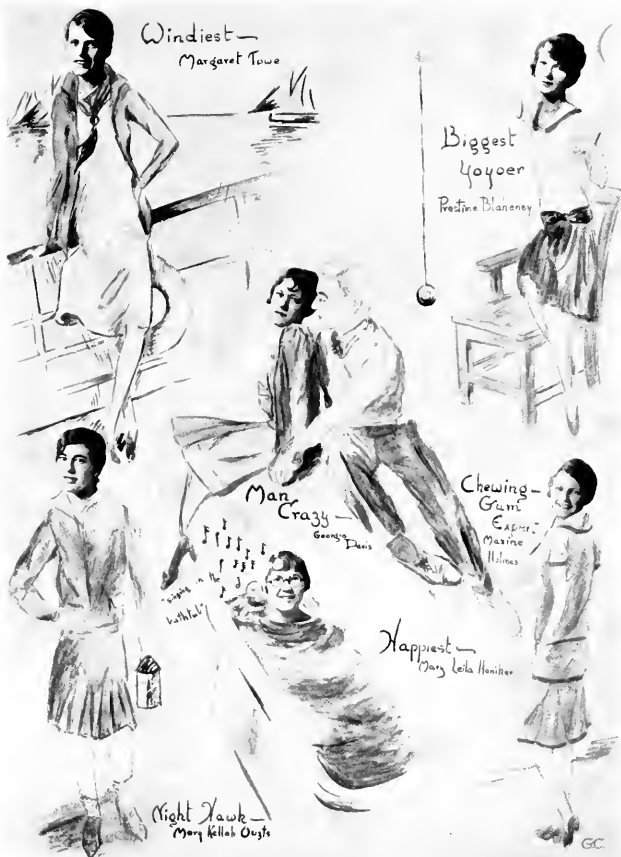 Windiest —
Margaret Towe
Biggest
Yoyoer
Prestine Blakeney
Man
Crazy —
Georgia
Davis
Chewing —
Gum
Expert
Maxine
Holmes
"singing in the
bathtub"
Happiest —
Mary Leila Honiker
Night Hawk —
Mary Kellah Ouzts
G.C.